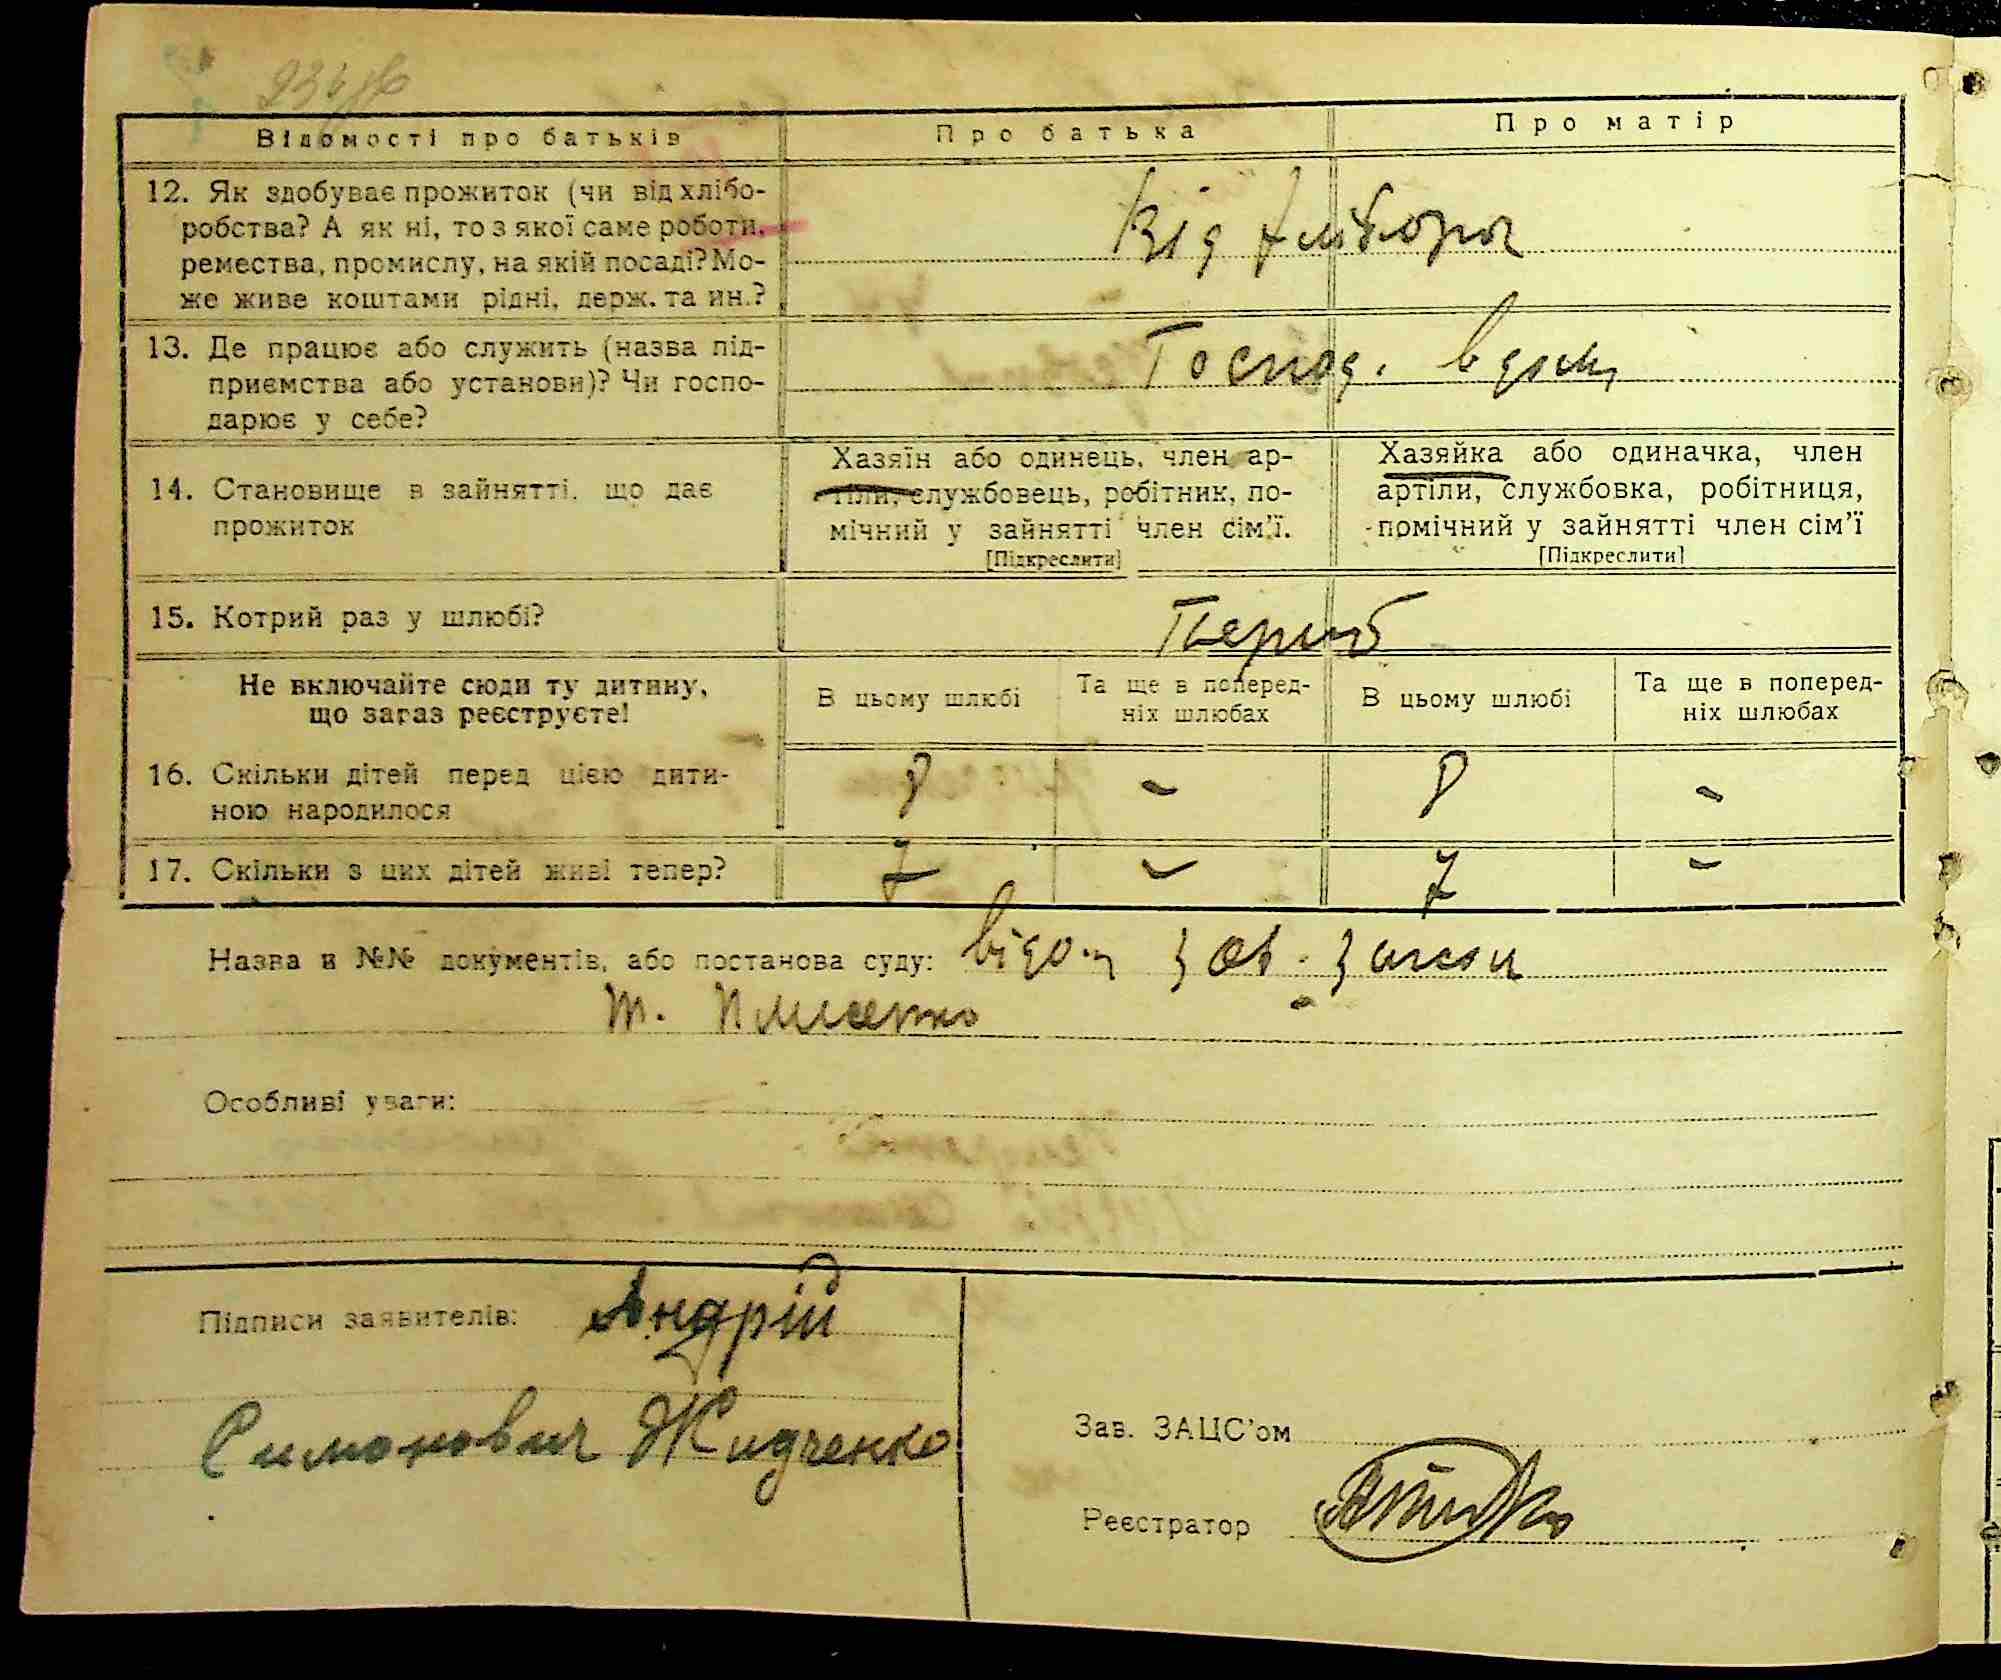 Відомості про батьків
Про батька
Про матір
12. Як здобуває прожиток (чи від хлібо-
робства? А як ні, то з якої саме роботи,
ремества, промислу, на якій посаді? Мо-
же живе коштами рідні, держ. та ин.?
Від
13. Де працює або служить (назва під-
приємства або установи)? Чи госпо-
дарює у себе?
Господ. вдома
14. Становище в зайнятті, що дає
прожиток
Хазяїн або одинець, член ар-
тіли, службовець, робітник, по-
мічний у зайнятті член сім'ї.
[Підкреслити]
Хазяйка або одиначка, член
артіли, службовка, робітниця,
помічний у зайнятті член сім'ї
[Підкреслити]
15. Котрий раз у шлюбі?
Не включайте сюди ту дитину,
що зараз реєструєте!
В цьому шлюбі
Та ще в поперед-
ніх шлюбах
В цьому шлюбі
Та ще в поперед-
ніх шлюбах
16. Скільки дітей перед цією дити-
ною народилося
8 - 8 -
17. Скільки з цих дітей живі тепер?
7 - 7 -
Назва и №№ документів, або постанова суду:
т.
Особливі уваги:
Підписи заявителів: Андрій
Симонович Жидченко
Зав. ЗАЦС'ом
Реєстратор